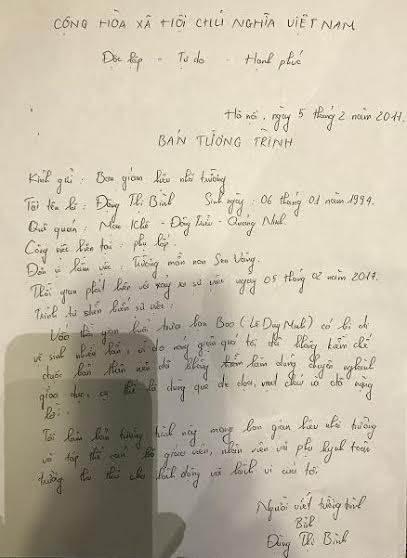 CỘNG HÒA XÃ HỘI CHỦ NGHĨA VIỆT NAM
Độc lập - Tự do - Hạnh phúc
Hà nội, ngày 5 tháng 2 năm 2017.
BẢN TƯỜNG TRÌNH
Kính gửi : Ban giám hiệu nhà trường
Tôi tên là : Đặng Thị Bình Sinh ngày : 06 tháng 01 năm 1994.
Quê quán : Mạo Khê - Đông Triều - Quảng Ninh.
Công việc hiện tại : phụ lớp.
Đơn vị làm việc : Trường mầm non Sen Vàng.
Thời gian phát hiện vụ xảy ra sự việc ngày 05 tháng 02 năm 2017.
Trình tự diễn biến sự việc :
Vào thời gian buổi trưa bạn Bao (Lê Duy Minh) có bị đi
vệ sinh nhiều lần, vì do nóng giận quá tôi đã không kiềm chế
được bản thân nên đã không làm đúng chuyên nghành
giáo dục, cụ thể là dùng que đe dọa, vụt cháu và có nặng
lời.
Tôi làm bản tường trình này mong ban giám hiệu nhà trường
và tập thể cán bộ giáo viên, nhân viên và phụ huynh toàn
trường tha thứ cho hành động và hành vi của tôi
Người viết tường trình
Bình
Đặng Thị Bình